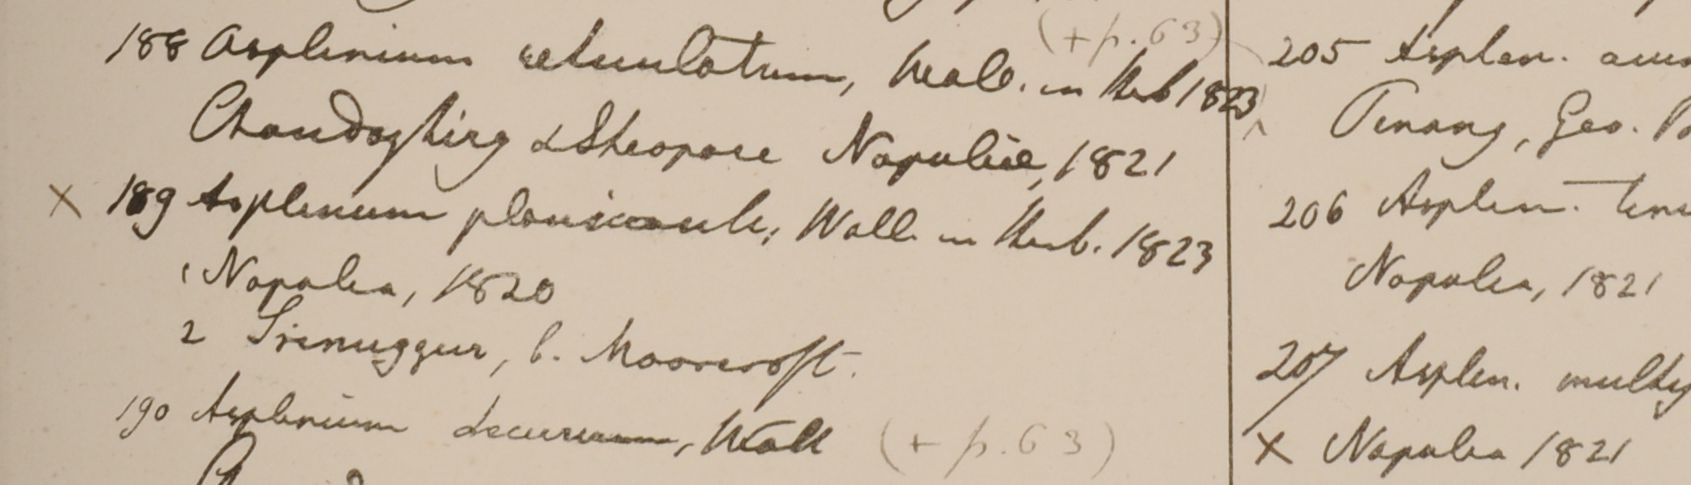 (+ p. 63)
188 Asplenium retusulatum, Wall. in Herb 1823
Chandaghirg & Sheopore Napuliæ, 1821
× 189 Asplenium planicaule; Wall. in Herb. 1823
1 Napulia, 1820
2 Srinuggur, b. Moorcroft.
190 Asplenium Wall (+ p. 63)
205 Asplen.
Penang, Geo.
206 Asplen.
Napulia, 1821
207 Asplen.
× Napulia 1821